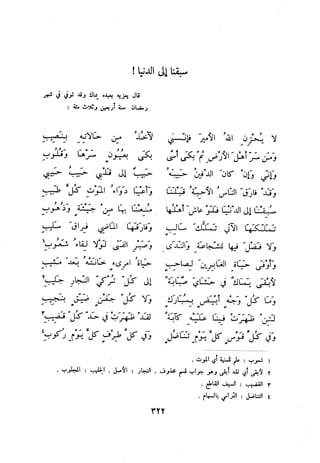 سبقنا إلى الدنيا !
قال يعزيه بعبده يماك وقد توفي في شهر
رمضان سنة أربعين وثلاث مئة :
لا يُحْزِنِ اللهُ الأميرَ فإنّني لآخُذُ مِن حالاتِهِ بنَصِيبِ
وَمَن سَرّ أهْلَ الأرْضِ ثمّ بكَى أسًى بكَى بعُيُونٍ سَرّهَا وَقُلُوبِ
وَإنّي وَإنْ كانَ الدّفينُ حَبيبَهُ حَبيبٌ إلى قَلْبي حَبِيبُ حَبيبي
وَقَد فارَقَ النّاسَ الأحِبّةُ قَبْلَنَا وَأعْيَا دَوَاءُ المَوْتِ كُلَّ طَبيبِ
سُبِقْنَا إلى الدّنْيَا فَلَوْ عاشَ أهْلُها مُنِعْنَا بهَا مِنْ جَيْئَةٍ وَذُهُوبِ
تَمَلّكَهَا الآتي تَمَلُّكَ سالِبٍ وَفارَقَهَا الماضِي فِراقَ سَليبِ
وَلا فَضْلَ فيها للشّجاعَةِ وَالنّدَى وَصَبْرِ الفَتى لَوْلا لِقاءُ شَعُوبِ١
وَأوْفَى حَيَاةِ الغَابِرِينَ لِصاحِبٍ حَيَاةُ امرِىءٍ خَانَتْهُ بَعدَ مَشيبِ
لأبْقَى يَمَاكٌ في حَشَايَ صَبَابَةً إلى كُلّ تُرْكيّ النّجارِ جَليبِ٢
وَمَا كُلُّ وَجْهٍ أبْيَضٍ بِمُبَارَكٍ وَلا كُلُّ جَفْنٍ ضَيّقٍ بنَجِيبِ
لَئِنْ ظَهَرَتْ فِينَا عَلَيْهِ كَآبَةٌ لقَدْ ظَهَرَتْ في حَدّ كُلّ قَضِيبِ٣
وَفي كُلِّ قَوْسٍ كُلَّ يَوْمٍ تَنَاضُلٍ وَفي كُلِّ طِرْفٍ كُلَّ يَوْمِ رُكُوبِ
١ شعوب : علم للمنية أي الموت .
٢ لأبقى أي لقد أبقى وهو جواب قسم محذوف . النجار : الأصل . الجليب : المجلوب .
٣ القضيب : السيف القاطع .
٤ التناضل : الترامي بالسهام .
٣٢٢